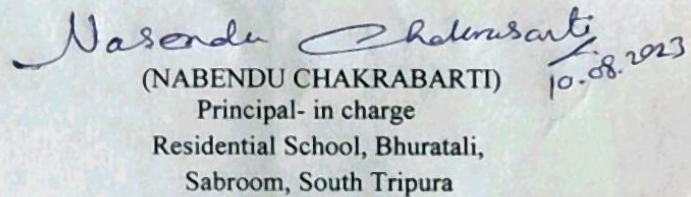 Nabendu Chakrabarti
10.08.2023
(NABENDU CHAKRABARTI)
Principal- in charge
Residential School, Bhuratali,
Sabroom, South Tripura